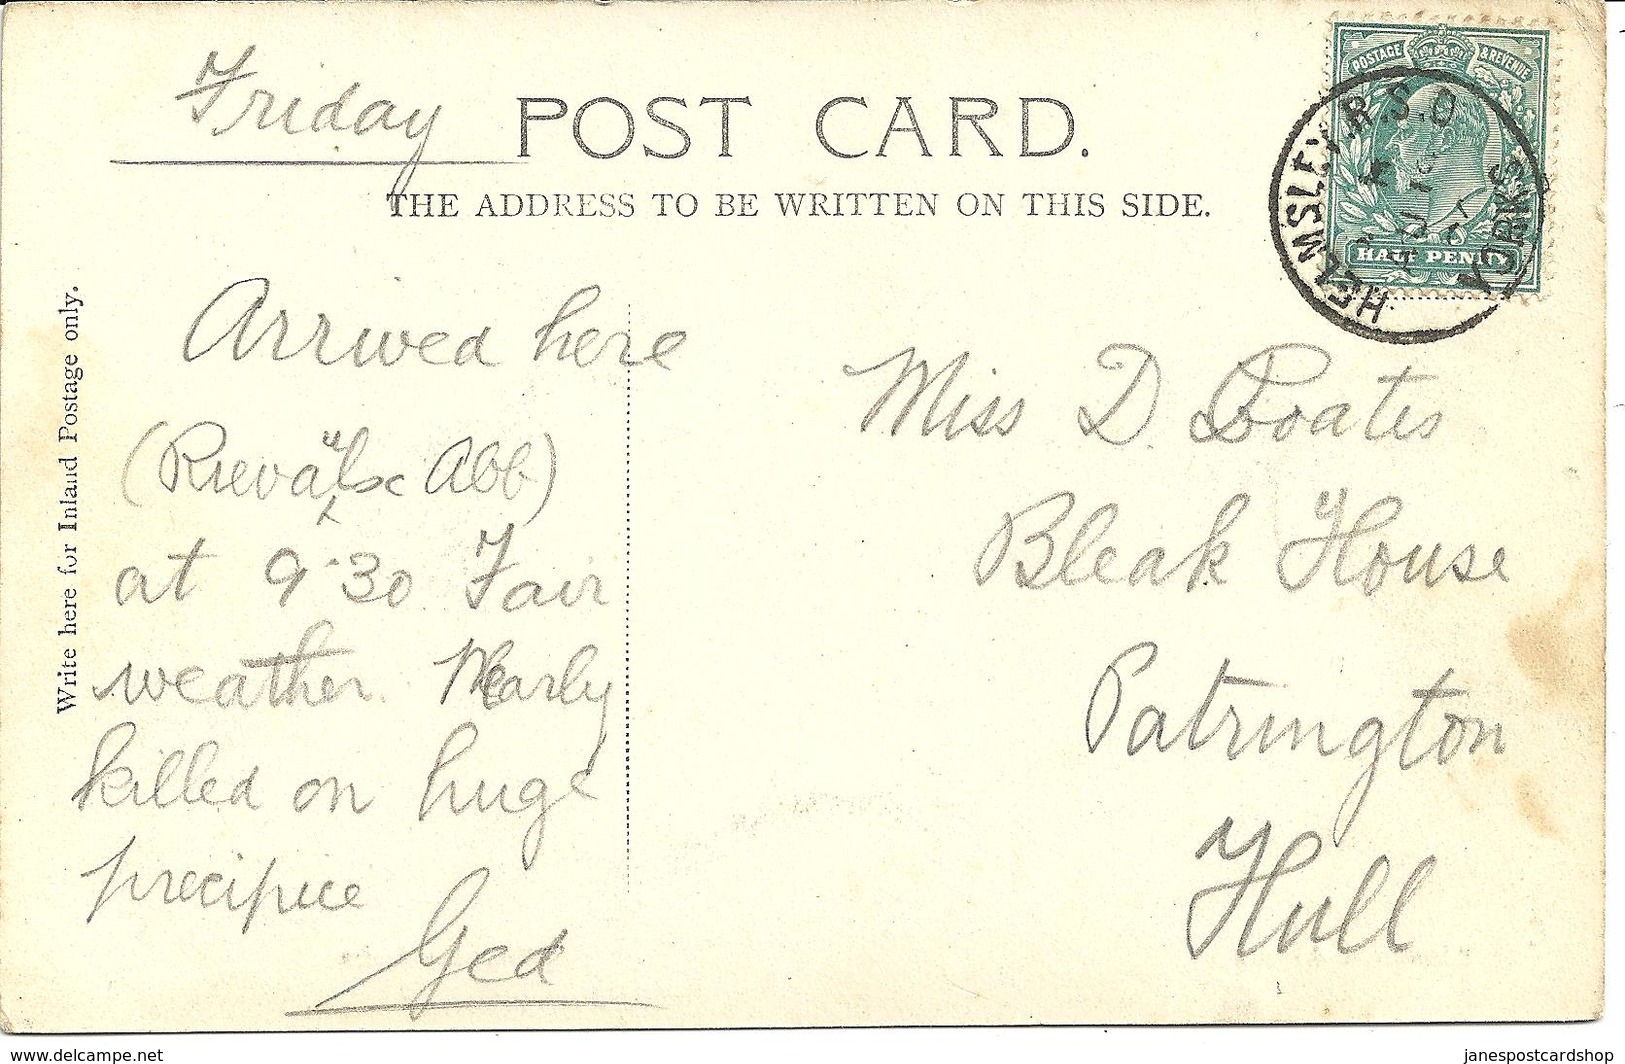 Friday
POST CARD.
THE ADDRESS TO BE WRITTEN ON THIS SIDE.
POSTAGE & REVENUE
HALF PENNY
HELMSLEY R.S.O
YORKS
Write here for Inland Postage only.
Arrived here
(Rievaulx Abb)
at 9.30 Fair
weather. Nearly
killed on huge
precipice
Ged
Miss D. Coates
Bleak House
Patrington
Hull
www.delcampe.net
janespostcardshop